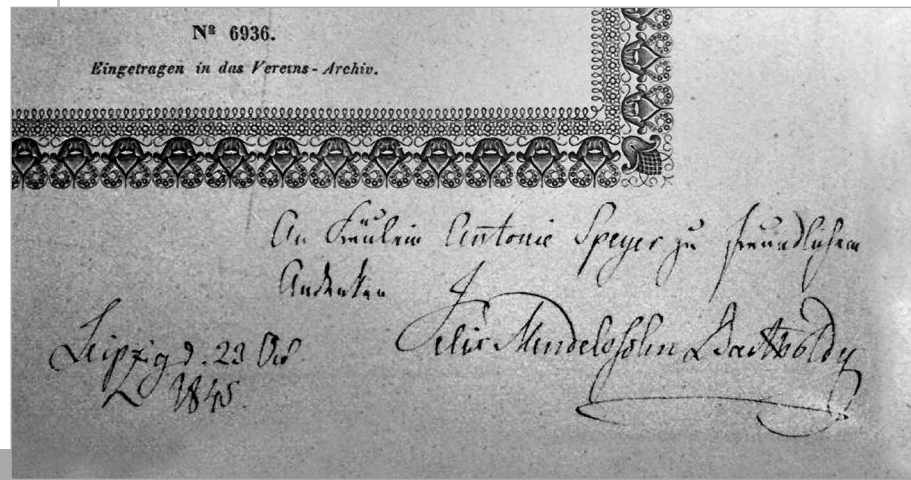 Nº 6936.
Eingetragen in das Vereins-Archiv.
An Fräulein Antonie Speyer zu freundlichem
Andenken
Felix Mendelssohn Bartholdy
Leipzig d. 23
1845.